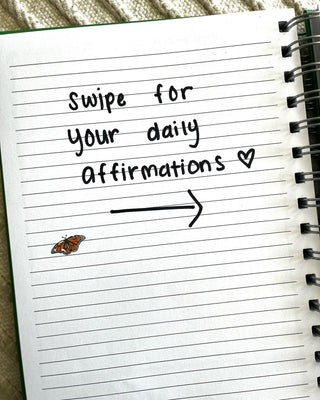 Swipe for
your daily
affirmations ♡